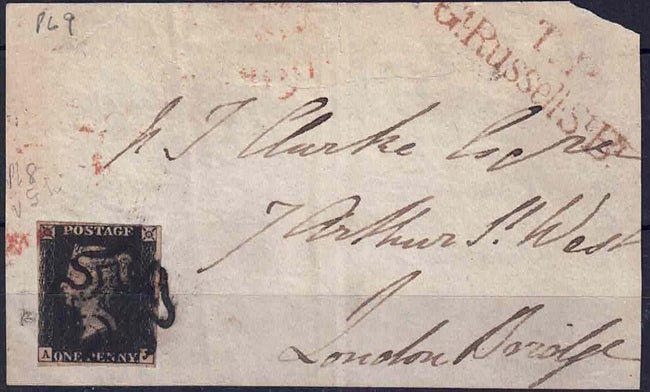 PL 9
T.P.
Gt.Russell.St.B.
J Clarke Esqre
7 Arthur St. West
London Bridge
PL 8
POSTAGE
A
ONE PENNY